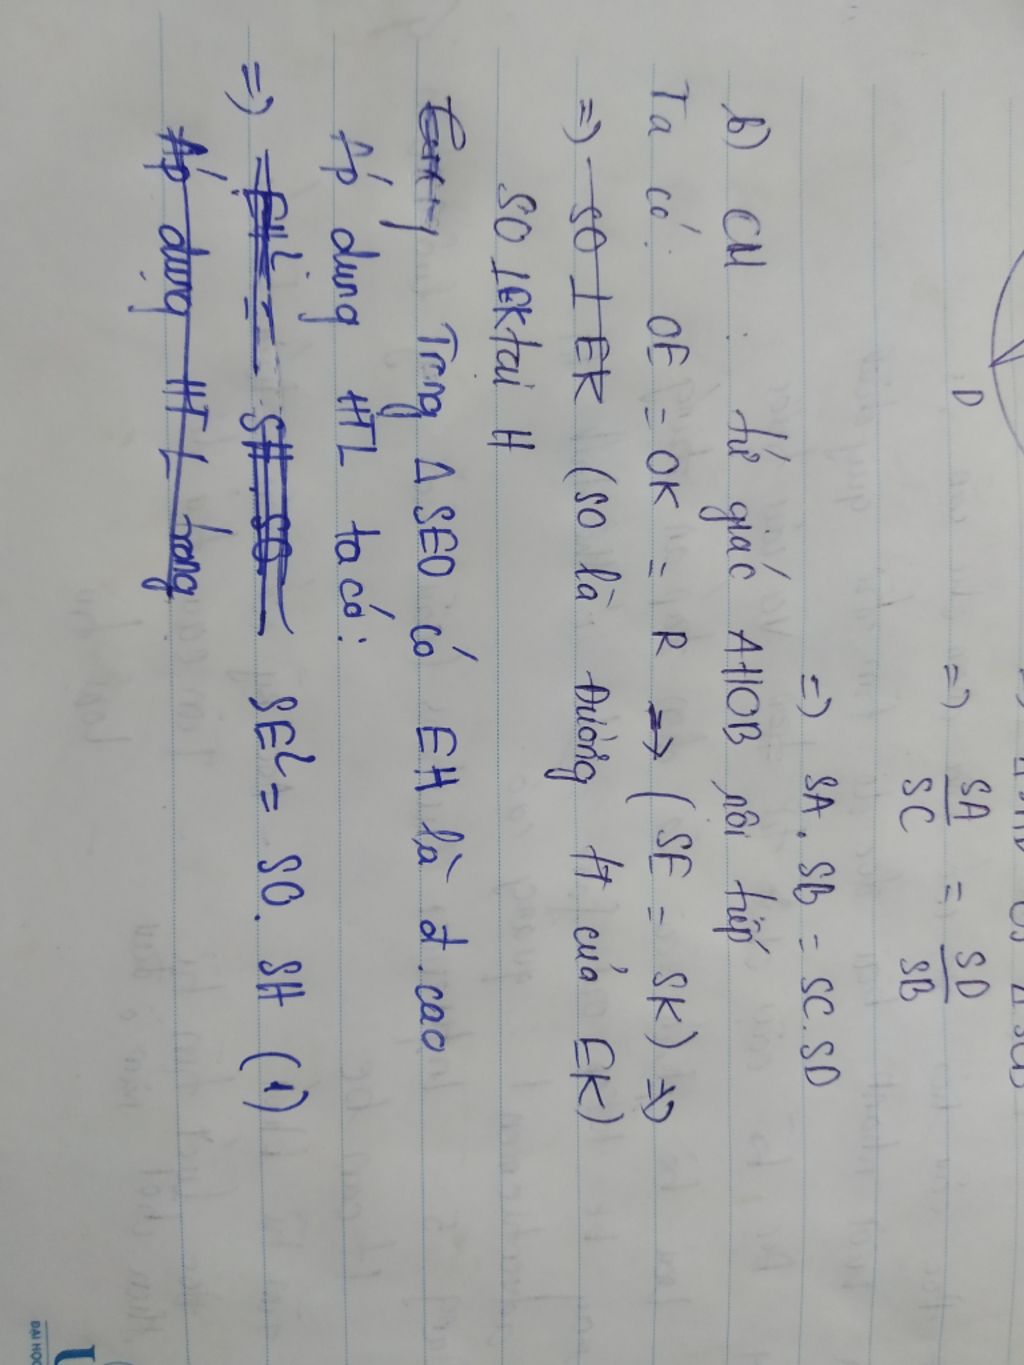 D
=) SA/SC = SD/SB
=) SA . SB = SC . SD
b) CM : tứ giác AHOB nội tiếp
Ta có: OE = OK = R → (SE = SK) =>
=) SO ⊥ EK (SO là đường tt của EK)
SO ⊥ EK tại H
Trong Δ SEO có EH là đ.cao
Áp dụng HTL ta có:
=) EH² = SH.SO SE² = SO. SH (1)
Áp dụng HTL trong
ĐẠI HỌC